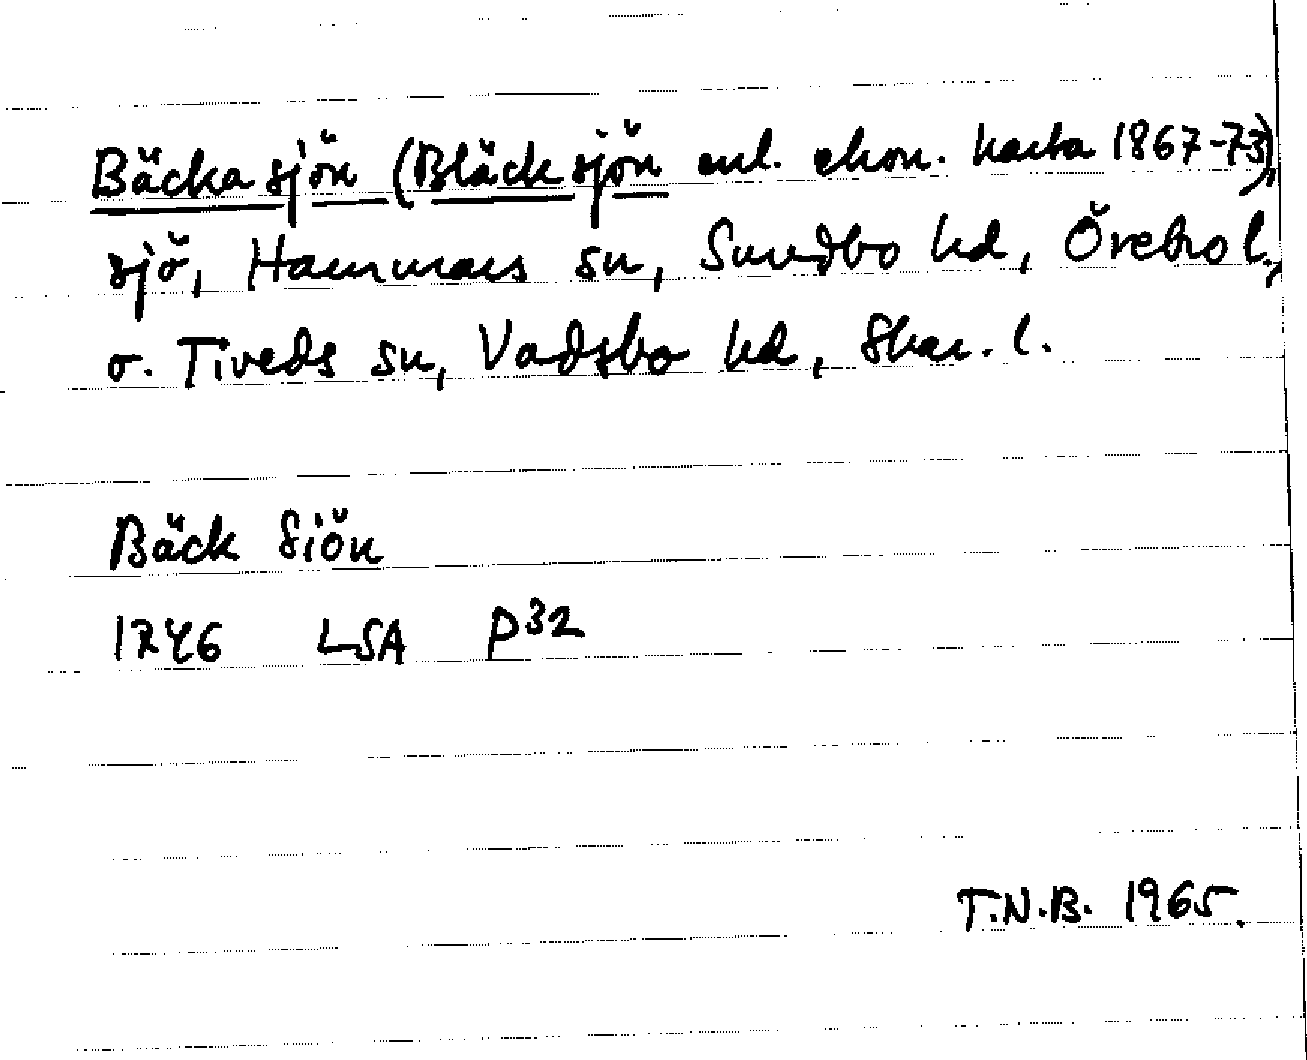 Bäckasjön (Bläcksjön enl. ekon. karta 1867-73),
sjö, Hammars sn, Sundbo hd, Örebro l.,
o. Tiveds sn, Vadsbo hd, Skar. l.
Bäck Siön
1746 LSA P32
T.N.B. 1965.